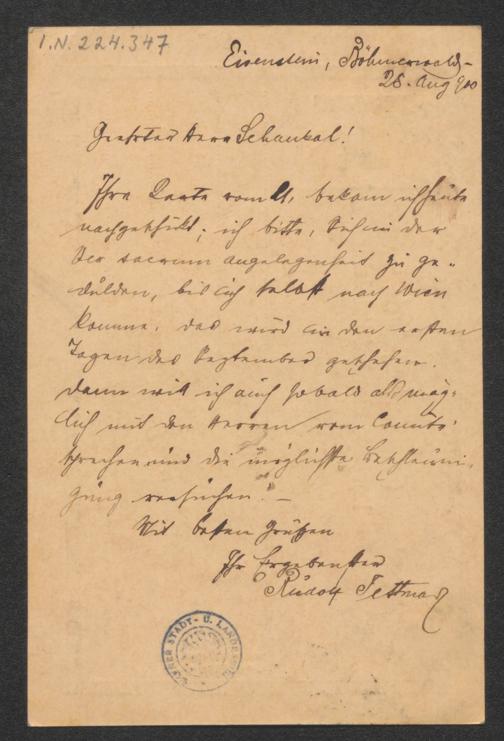 I.N. 224.347
Eisenstein, Böhmerwald –
28. Aug 900
Geehrter Herr Schaukal!
Ihre Karte vom 21. bekam ich heute
nachgeschickt; ich bitte, Sich in der
Ver sacrum angelegenheit zu ge-
dulden, bis ich selbst nach Wien
komme. das wird in den ersten
Tagen des Septembers geschehen.
dann will ich auch sobald als mög-
lich mit den Herren vom Comité
sprechen und die möglichste Beschleuni-
gung versuchen. –
Mit besten Grüßen
Ihr Ergebenster
Rudolf
WIENER STADT- U. LANDES